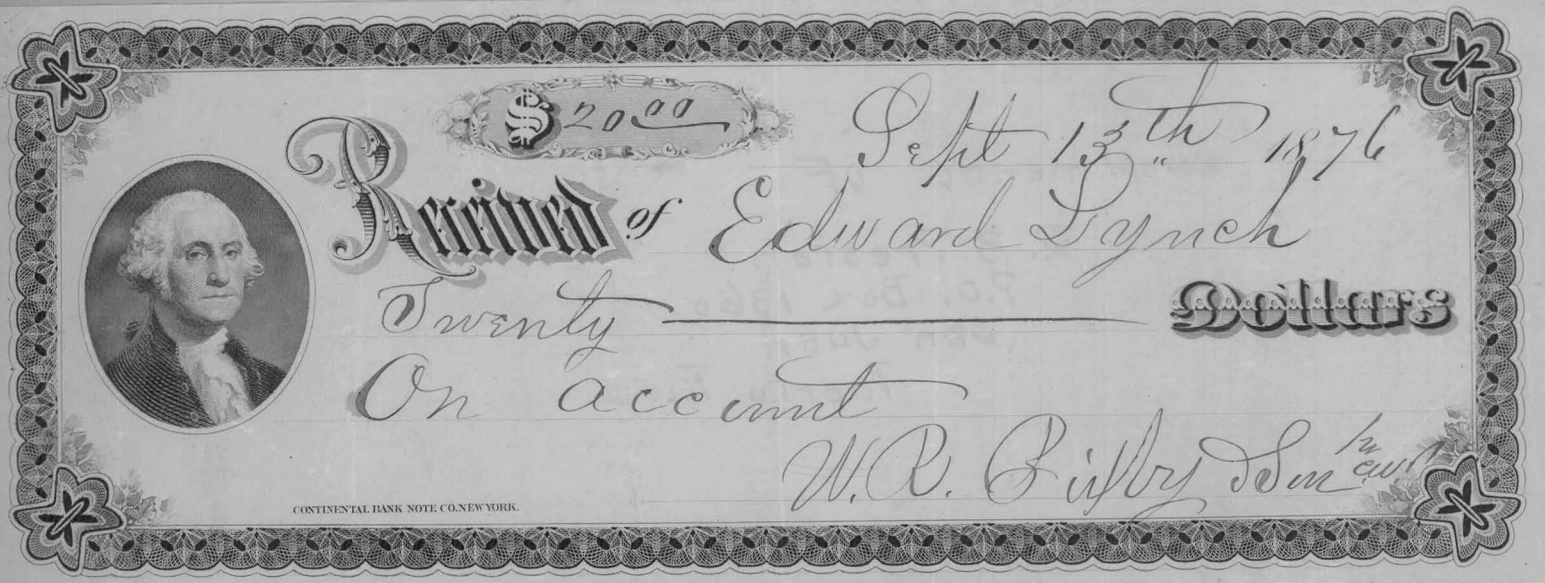 $ 20 00
Sept 13th 1876
Received of Edward Lynch
Twenty Dollars
On account
W. R. Bixby & Son
CONTINENTAL BANK NOTE CO. NEW YORK.